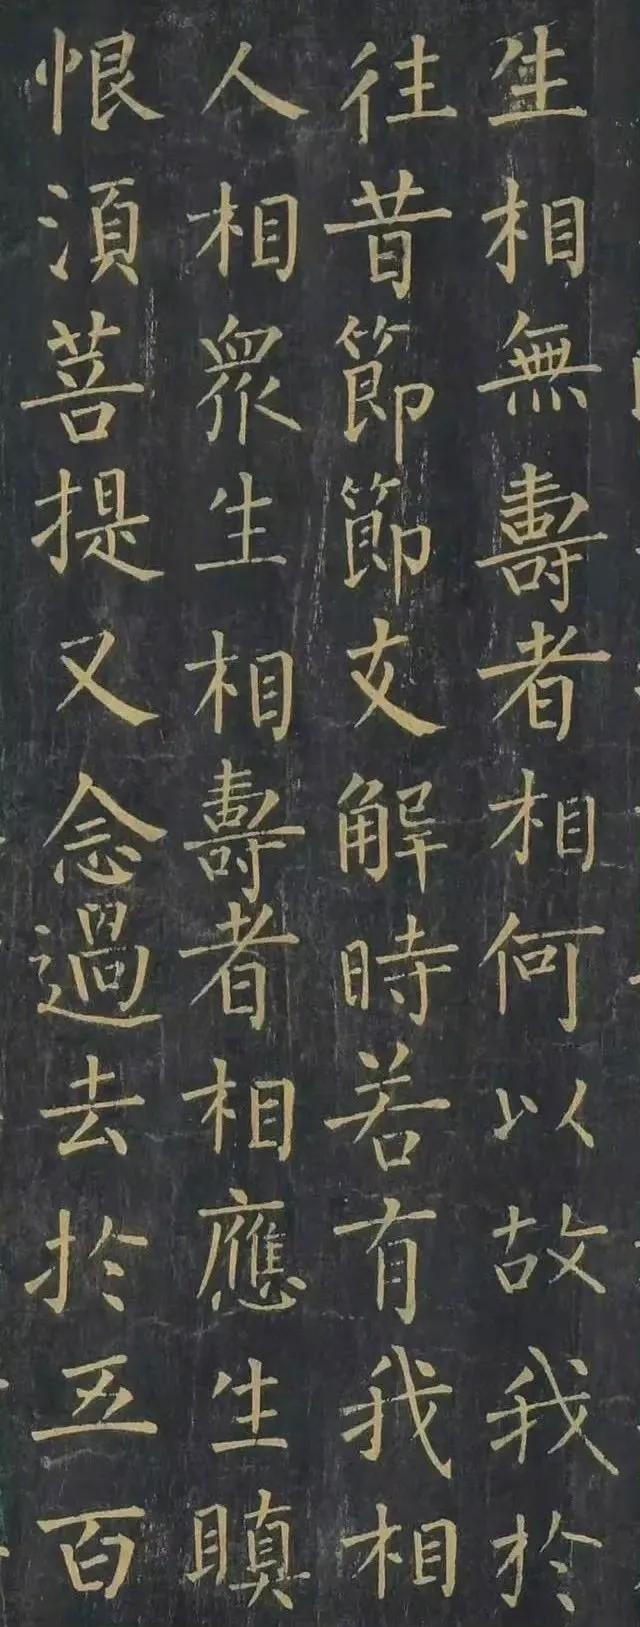 生相無壽者相何以故我於
往昔節節支解時若有我相
人相衆生相壽者相應生瞋
恨湏菩提又念過去於五百